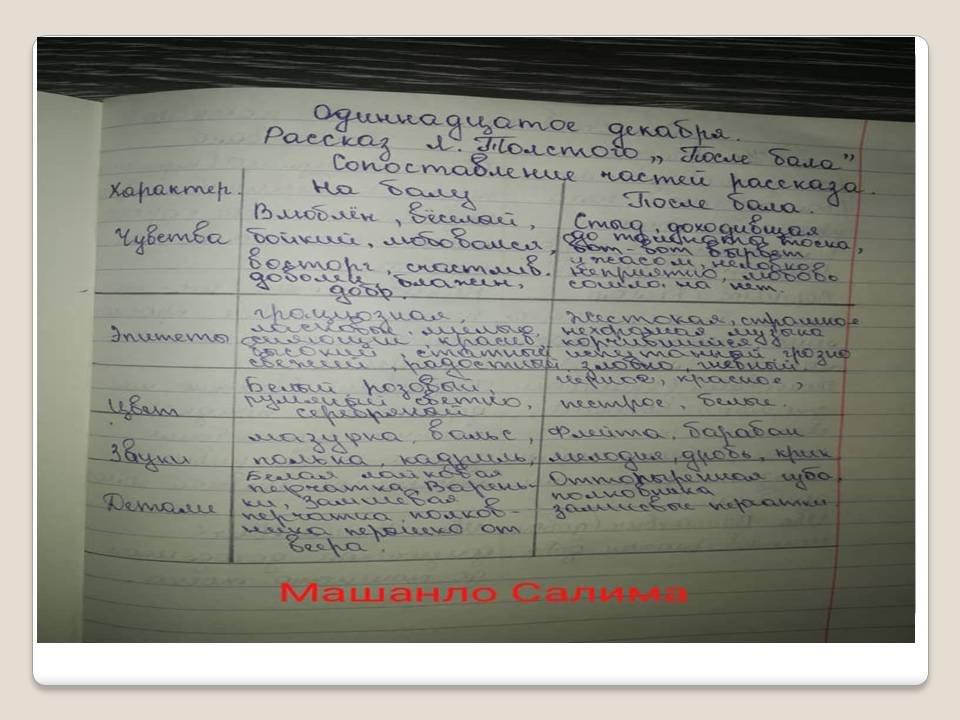 Одиннадцатое декабря.
Рассказ Л. Толстого „После бала”
Сопоставление частей рассказа.
Характер.
На балу
После бала.
Чувства
Влюблён, весёлый,
бойкий, любовался,
восторг, счастлив.
доволен, блажен,
добр.
Стыд, доходившая
до тошноты тоска,
вот-вот вырвет
ужасом, неловкое
неприятно, любовь
сошла на нет.
Эпитеты
грациозная,
ласковый, милые,
сияющий, красив,
высокий, статный
свежий, радостный,
Жестокая, страшное
нехорошая музыка
корчившийся
грозно
злобно,
Цвет
Белый, розовый,
румяный, светло,
серебряной
чёрное, красное,
пестрое, белые.
Звуки
мазурка, вальс,
полька, кадриль,
Флейта, барабан
мелодия, дробь, крик
Детали
Белая лайковая
перчатка Варень-
ки, замшевая
перчатка полков-
ника пёрышко от
веера.
Оттопыренная губа,
полковника
замшевые перчатки
Машанло Салима